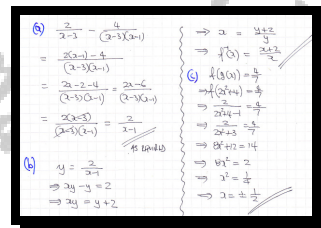 (a) 2/(x-3) - 4/((x-3)(x-1))
= (2(x-1) - 4)/((x-3)(x-1))
= (2x-2-4)/((x-3)(x-1)) = (2x-6)/((x-3)(x-1))
= (2(x-3))/((x-3)(x-1)) = 2/(x-1)
as required
(b) y = 2/(x-1)
⇒ xy - y = 2
⇒ xy = y + 2
⇒ x = (y+2)/y
⇒ f⁻¹(x) = (x+2)/x
(c) f(g(x)) = 4/7
⇒ f(2x²+4) = 4/7
⇒ 2/(2x²+4-1) = 4/7
⇒ 2/(2x²+3) = 4/7
⇒ 8x²+12 = 14
⇒ 8x² = 2
⇒ x² = 1/4
⇒ x = ± 1/2